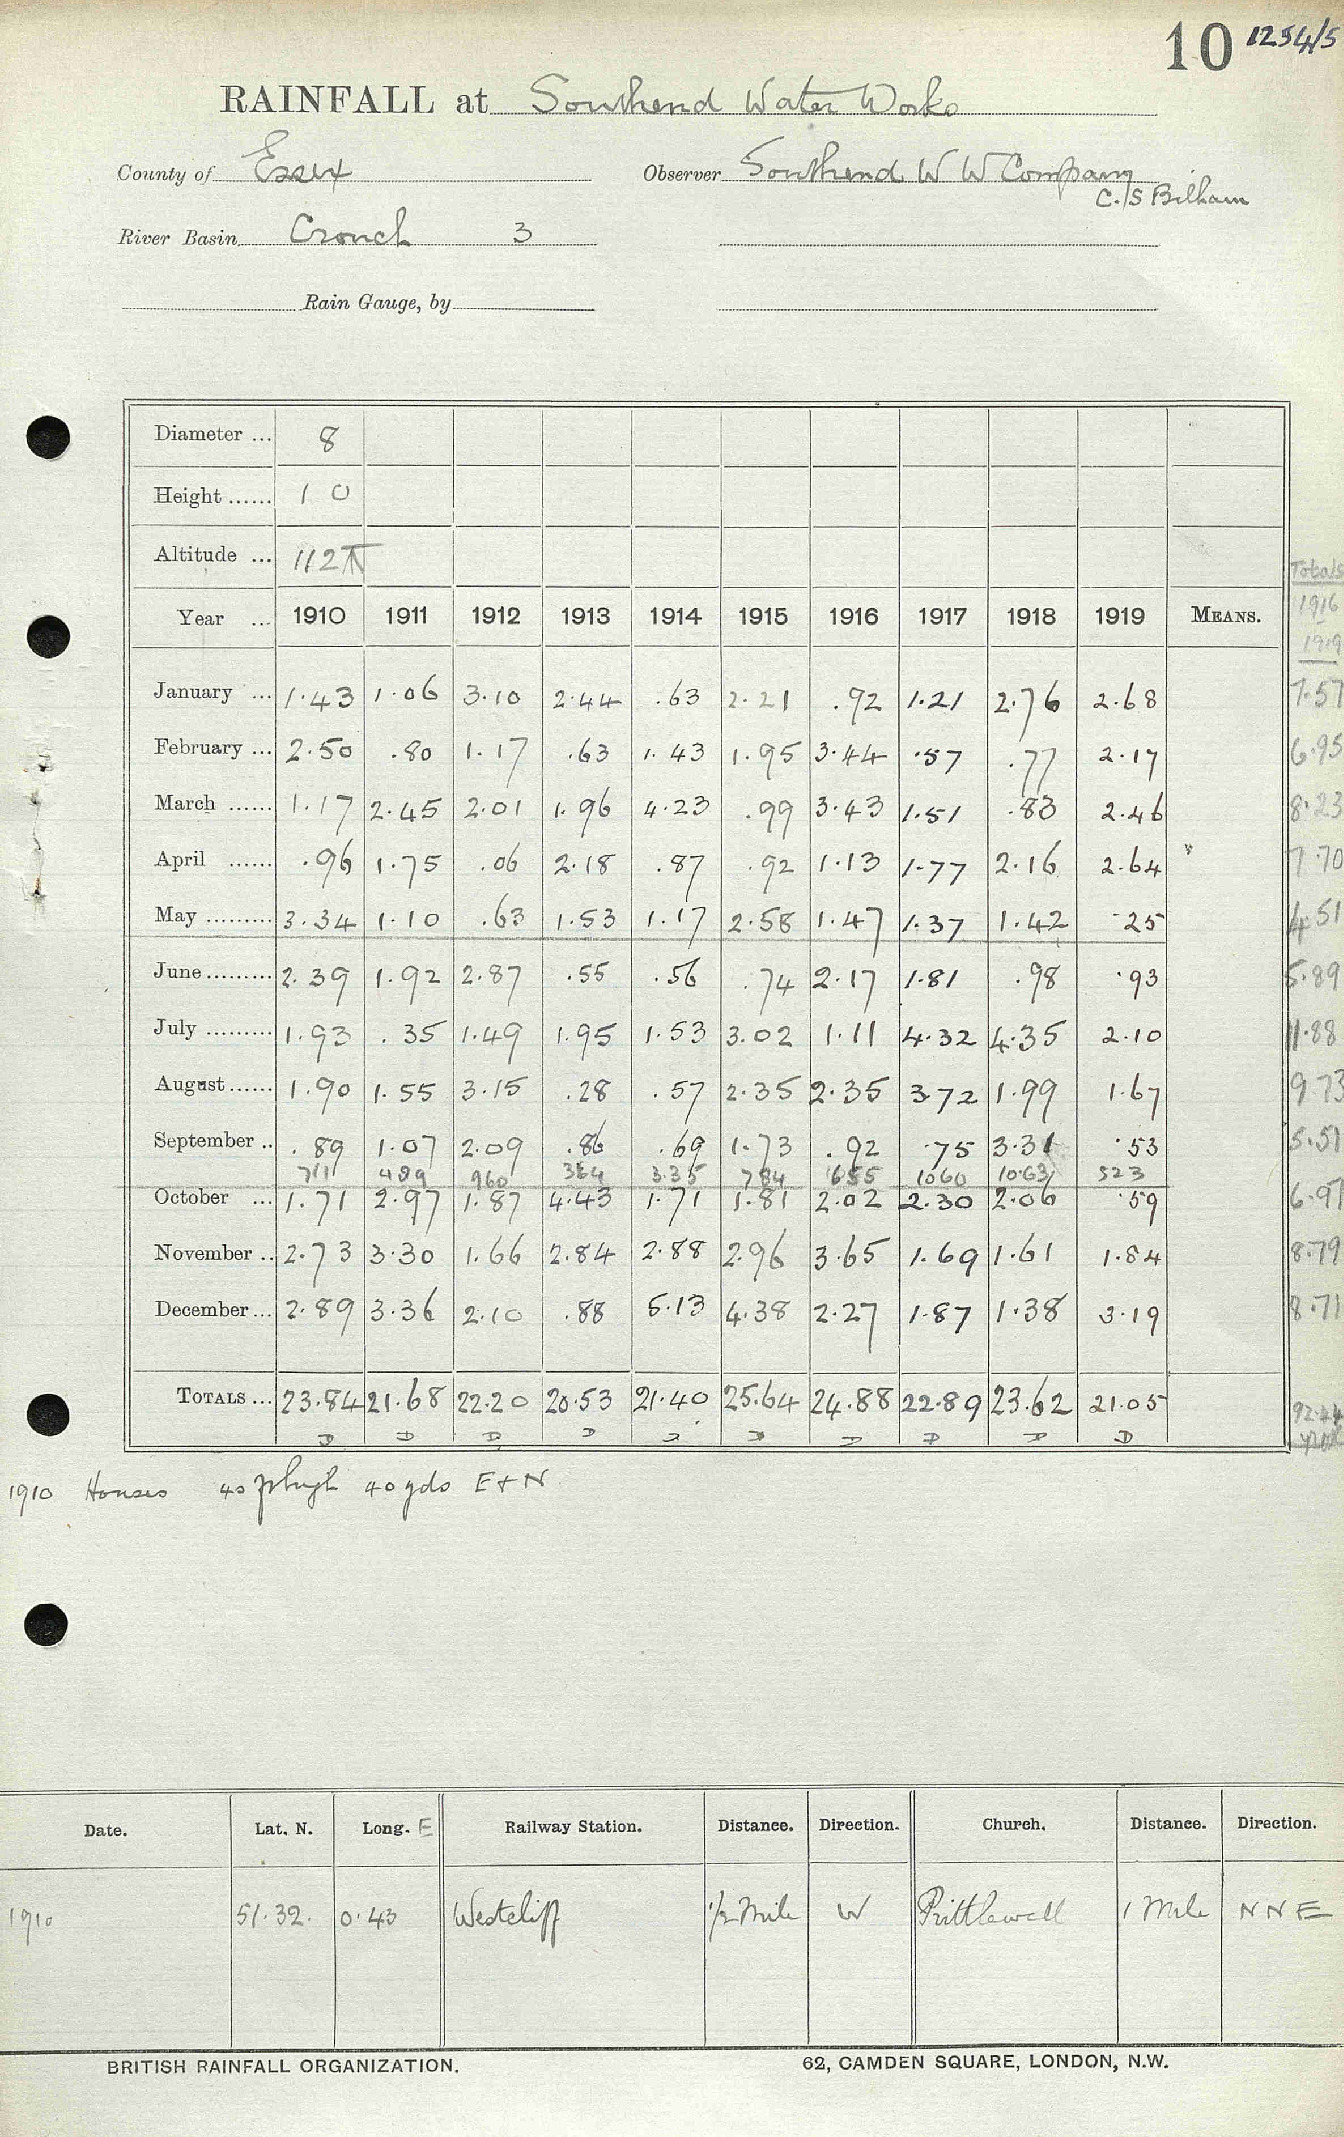 10 1254/5
RAINFALL at Southend Water Works
County of Essex Observer Southend W W Company
C. S Bilham
River Basin Crouch 3
Rain Gauge, by
Diameter ... 8
Height ...... 1 0
Altitude ... 112 ft
Totals
Year ... 1910 1911 1912 1913 1914 1915 1916 1917 1918 1919 MEANS. 1916
1919
January ... 1.43 1.06 3.10 2.44 .63 2.21 .92 1.21 2.76 2.68 7.57
February ... 2.50 .80 1.17 .63 1.43 1.95 3.44 .57 .77 2.17 6.95
March ...... 1.17 2.45 2.01 1.96 4.23 .99 3.43 1.51 .83 2.46 8.23
April ...... .96 1.75 .06 2.18 .87 .92 1.13 1.77 2.16 2.64 7.70
May ......... 3.34 1.10 .63 1.53 1.17 2.58 1.47 1.37 1.42 .25 4.51
June ......... 2.39 1.92 2.87 .55 .56 .74 2.17 1.81 .98 .93 5.89
July ......... 1.93 .35 1.49 1.95 1.53 3.02 1.11 4.32 4.35 2.10 11.88
August ...... 1.90 1.55 3.15 .28 .57 2.35 2.35 3.72 1.99 1.67 9.73
September .. .89 1.07 2.09 .86 .69 1.73 .92 .75 3.31 .53 5.51
711 489 960 364 3.35 784 655 1060 1063 523
October ... 1.71 2.97 1.87 4.43 1.71 1.81 2.02 2.30 2.06 .59 6.97
November .. 2.73 3.30 1.66 2.84 2.88 2.96 3.65 1.69 1.61 1.84 8.79
December ... 2.89 3.36 2.10 .88 5.13 4.38 2.27 1.87 1.38 3.19 8.71
TOTALS ... 23.84 21.68 22.20 20.53 21.40 25.64 24.88 22.89 23.62 21.05 92.44
D D D D D D D D D D
1910 Houses 40 ft high 40 yds E + N
Date. Lat. N. Long. E Railway Station. Distance. Direction. Church. Distance. Direction.
1910 51.32. 0.43 Westcliff 1/2 Mile W Prittlewell 1 Mile N N E
BRITISH RAINFALL ORGANIZATION. 62, CAMDEN SQUARE, LONDON, N.W.